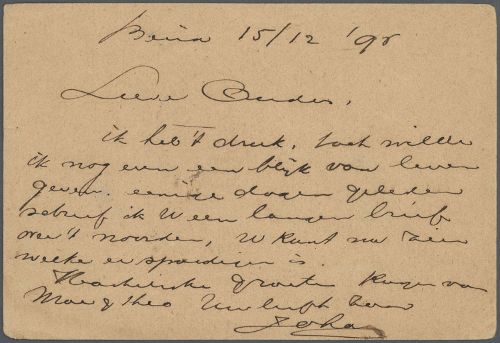 Beira 15/12 '98
Lieve Ouders,
ik heb 't druk, toch wilde
ik nog even een blijk van leven
geven, eenige dagen geleden
schreef ik U een langen brief
over 't noorden, U kunt nu zien
welke er spoediger is.
Hartelijke groeten Kusjes van
Moe & Theo Uw liefh. zoon
Joha